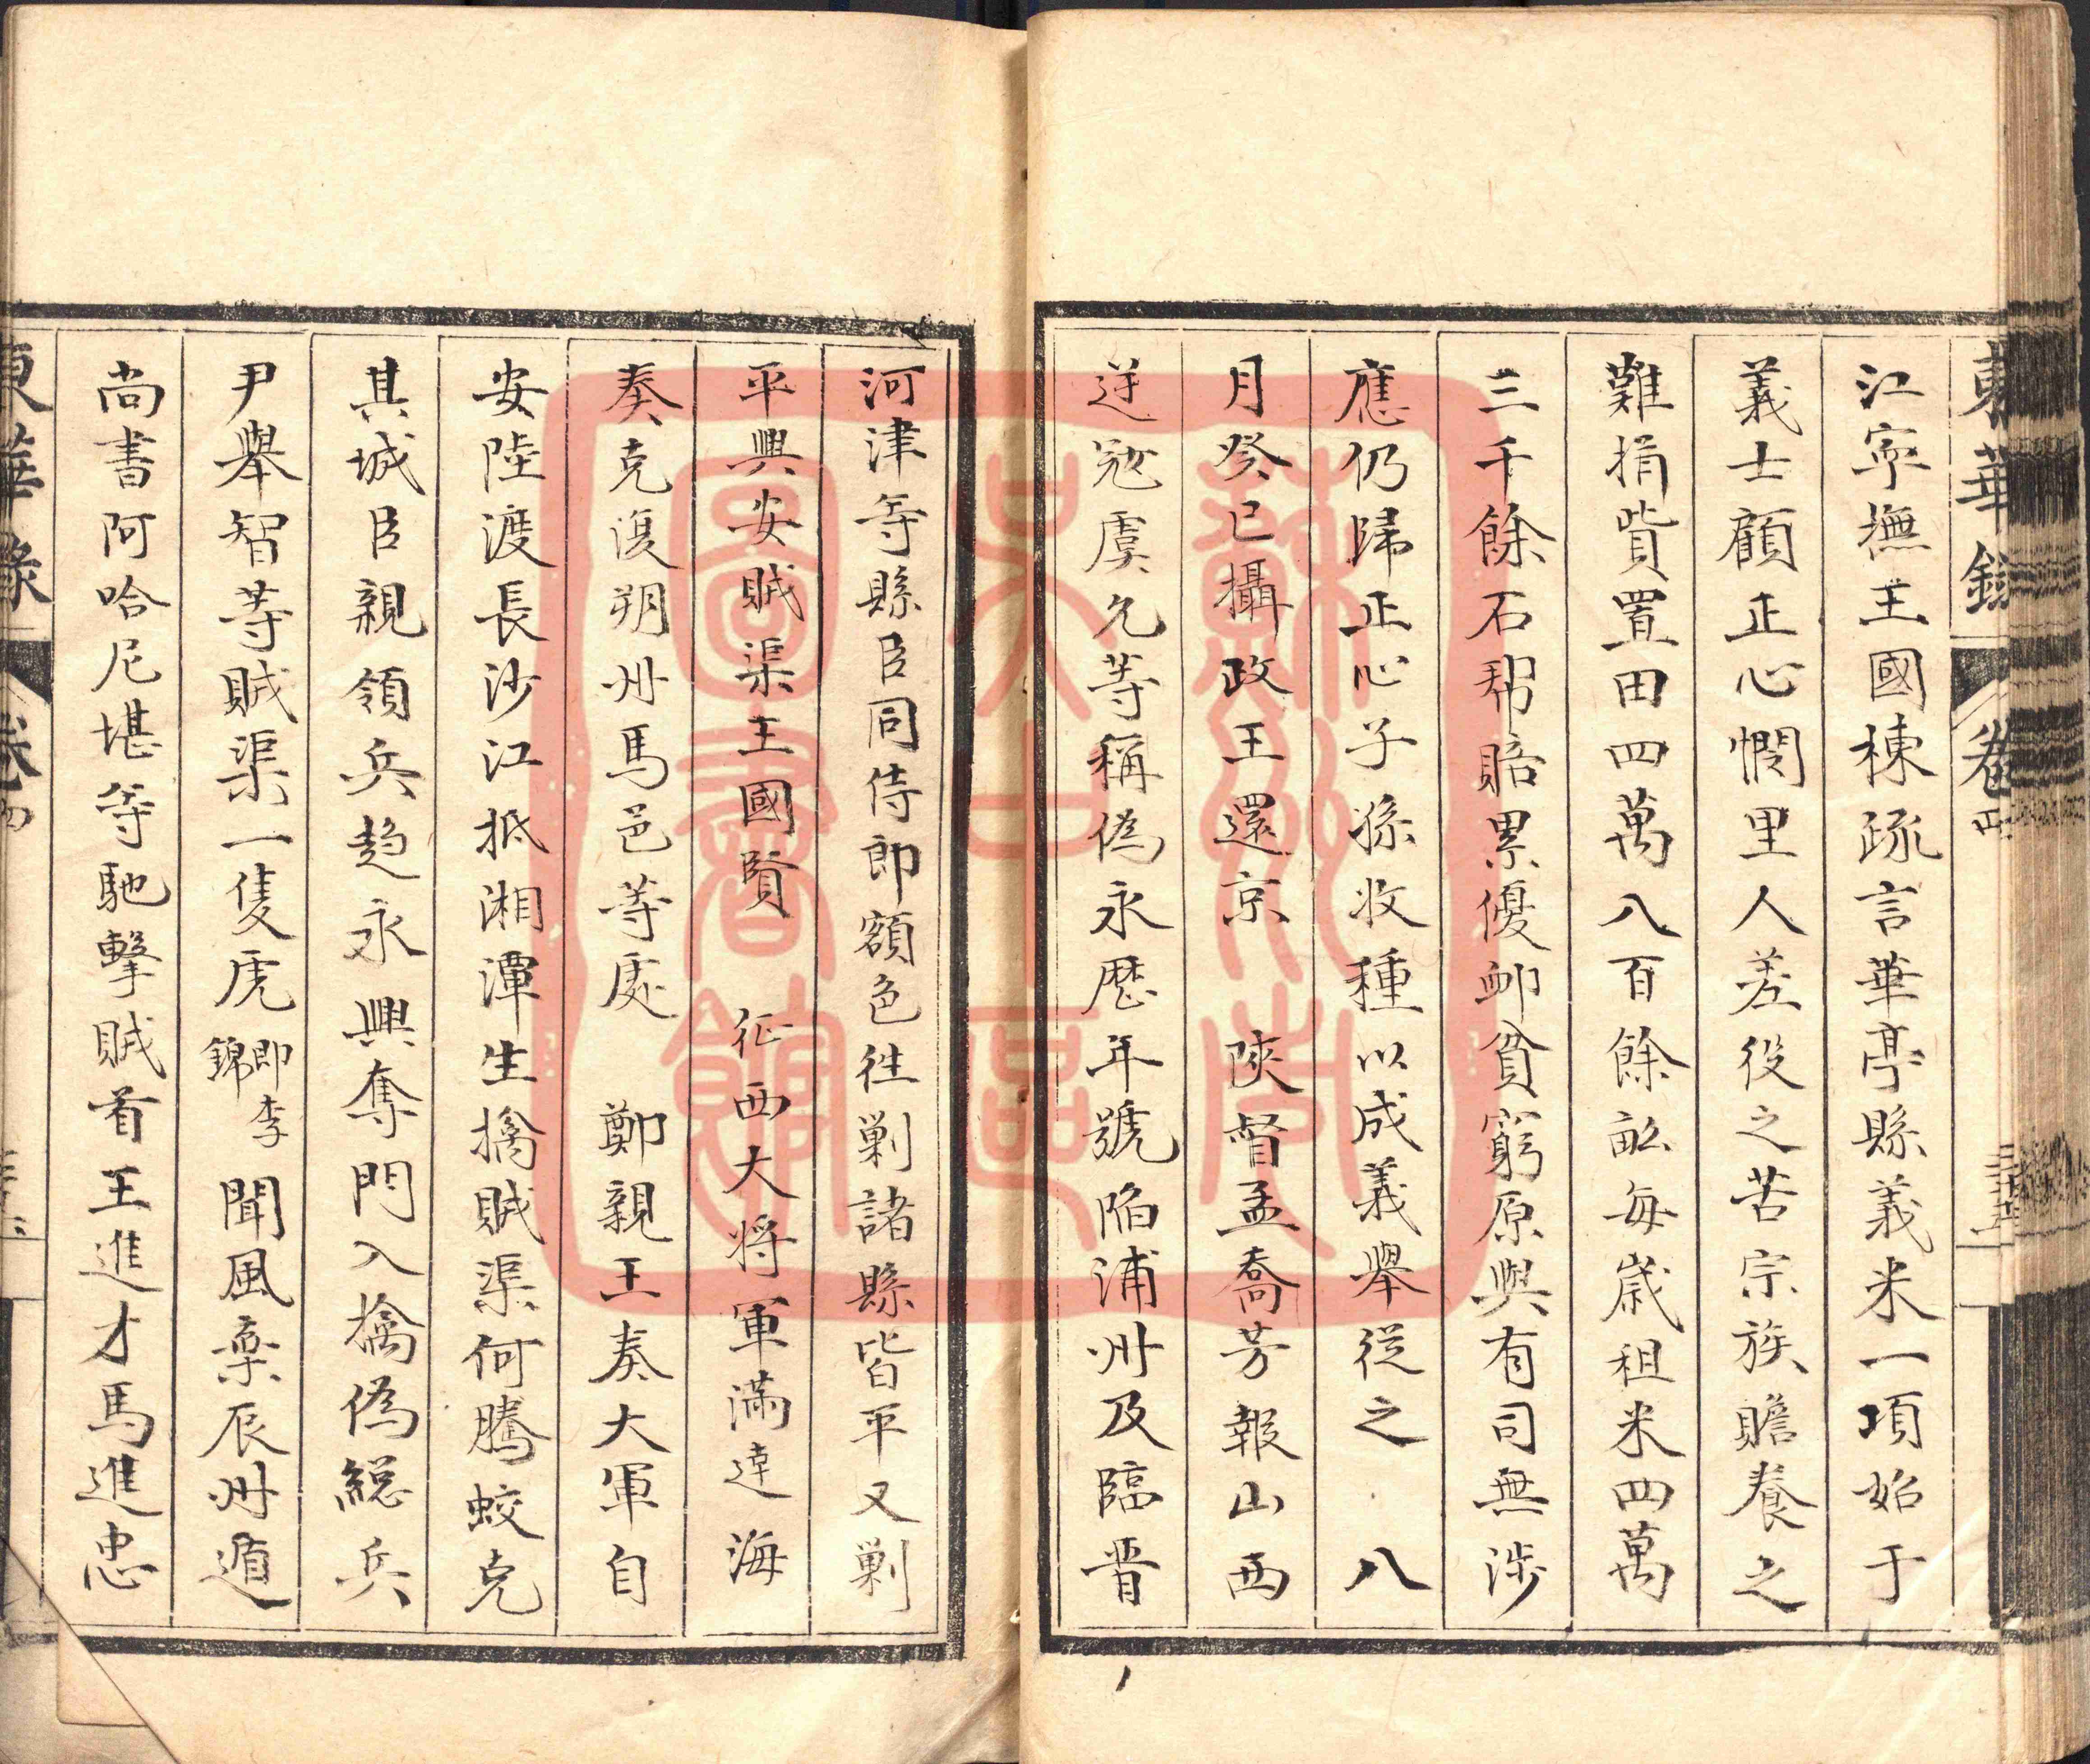 東華錄 卷四 三十五
江寧撫王國棟疏言華亭縣義米一項始于
義士顧正心憫里人差役之苦宗族贍養之
難捐貲置田四萬八百餘畝每歲租米四萬
三千餘石帮賠累優卹貧窮原與有司無涉
應仍歸正心子孫收種以成義舉從之 八
月癸巳攝政王還京 陝督孟喬芳報山西
逆寇虞允等稱偽永歷年號陷浦州及臨晉
河津等縣臣同侍郎額色徃剿諸縣皆平又剿
平興安賊渠王國賢 征西大將軍滿達海
奏克復朔州馬邑等處 鄭親王奏大軍自
安陸渡長沙江抵湘潭生擒賊渠何騰蛟克
其城臣親領兵趋永興奪門入擒偽総兵
尹舉智等賊渠一隻虎即李錦聞風棄辰州遁
尚書阿哈尼堪等馳擊賊首王進才馬進忠
東華錄 卷四
蘇州市
吳中區
圖書館